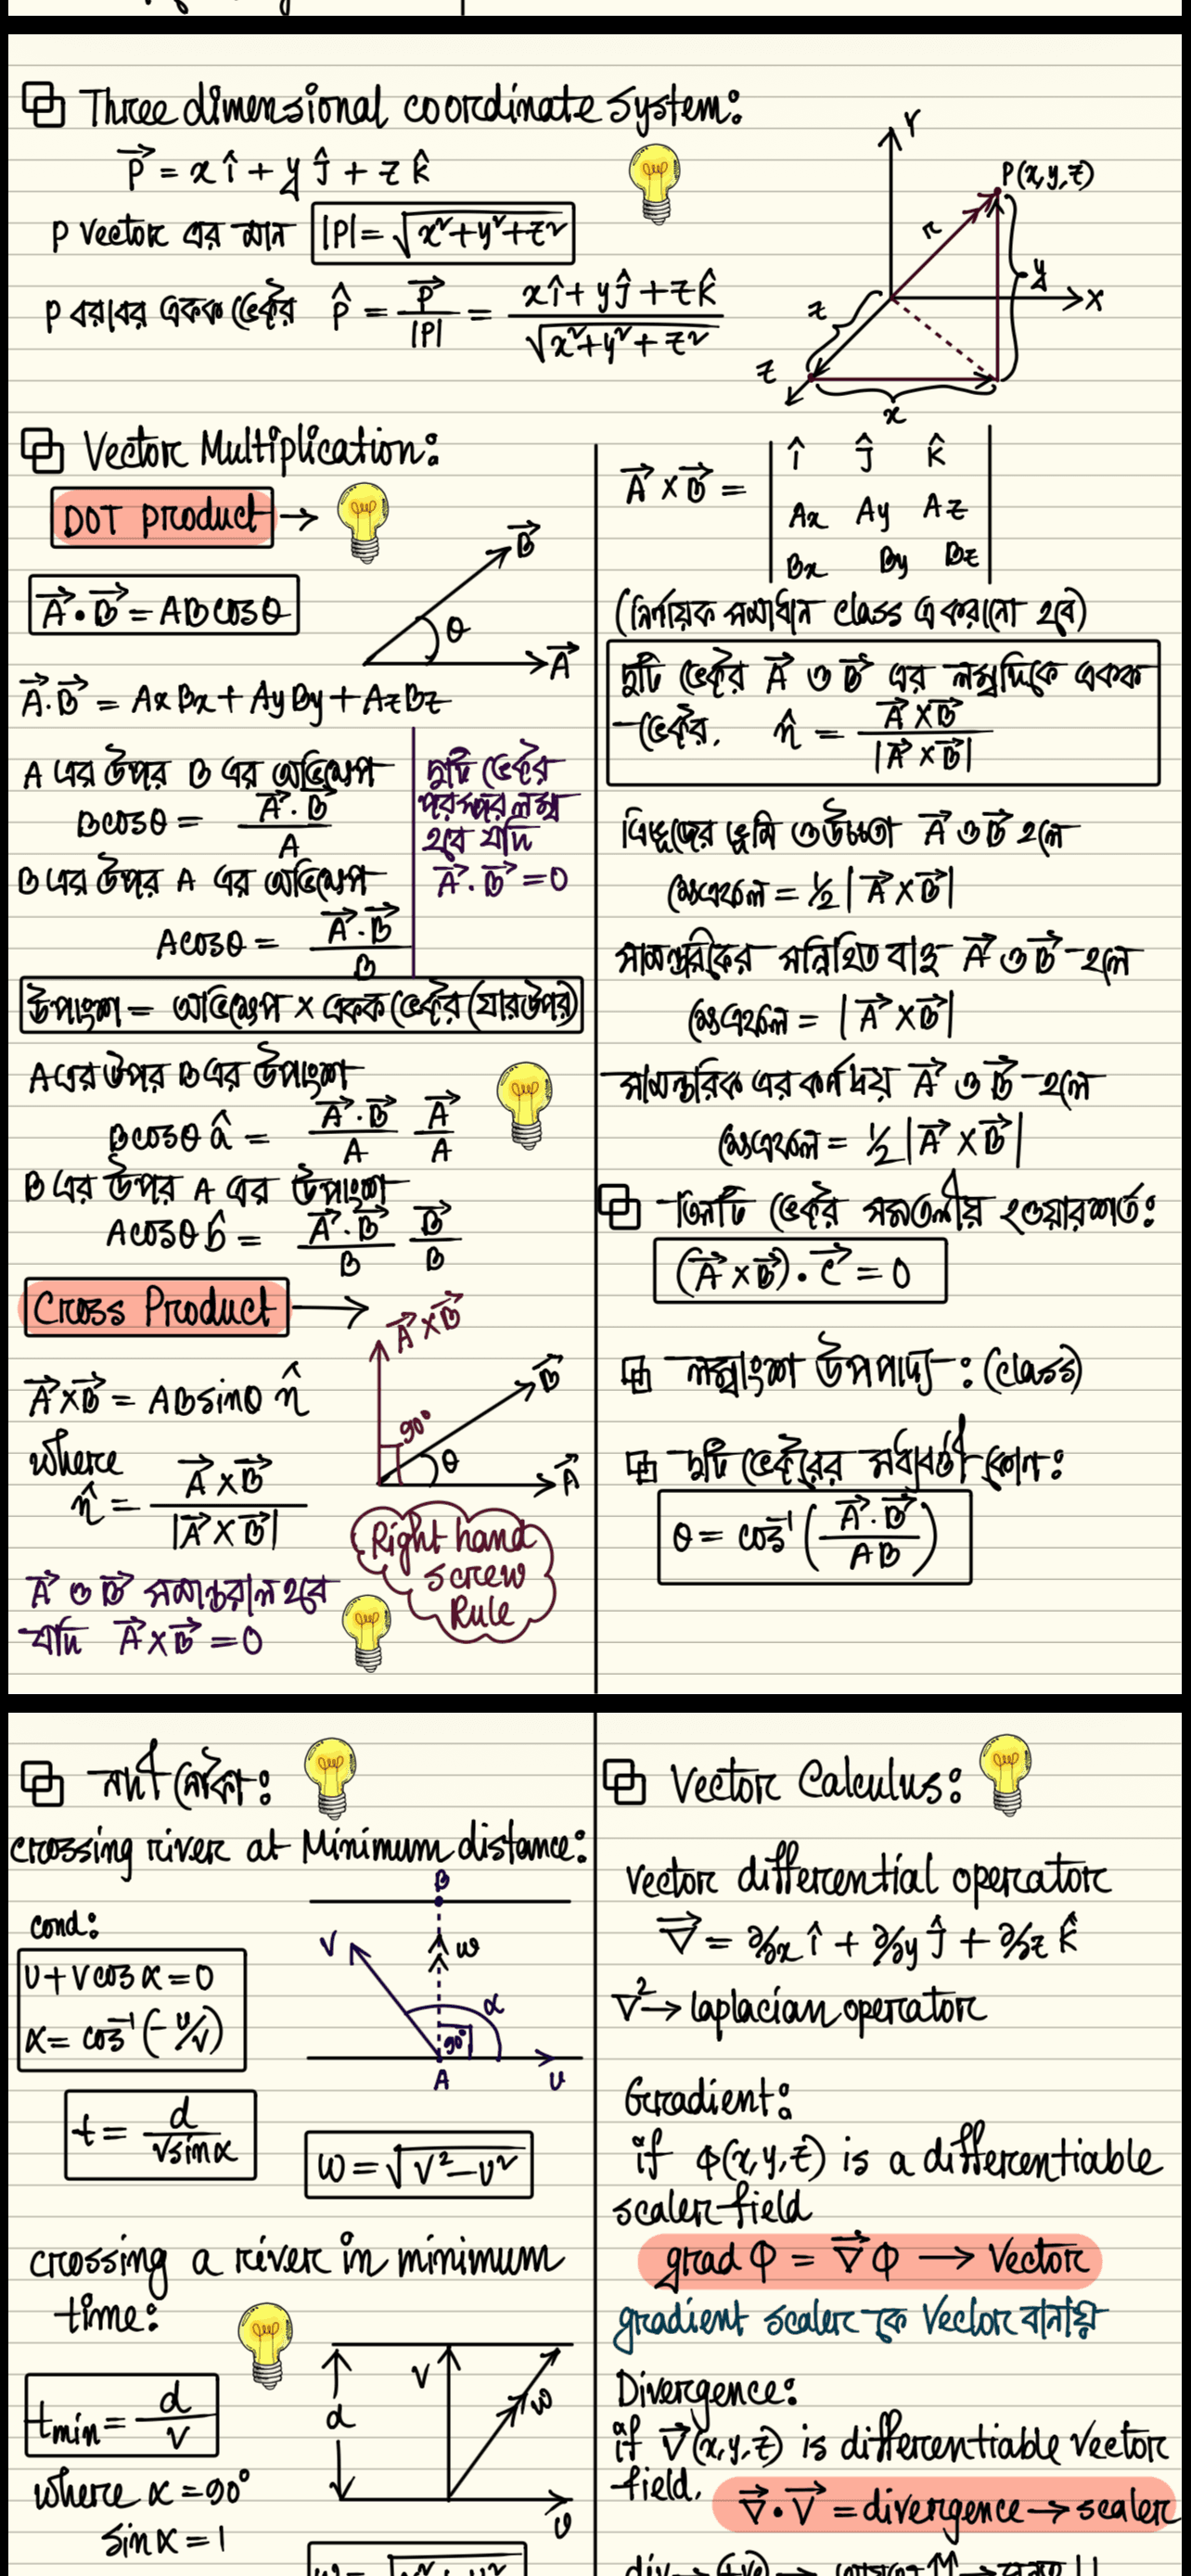 Three dimensional coordinate system:
P⃗ = x î + y ĵ + z k̂
P vector এর মান |P| = √x²+y²+z²
P বরাবর একক ভেক্টর P̂ = P⃗/|P| = xî+yĵ+zk̂/√x²+y²+z²
Y
P(x,y,z)
r
y
X
z
Z
x
Vector Multiplication:
DOT product →
A⃗·B⃗ = ABcosθ
B⃗
θ
A⃗
A⃗·B⃗ = AxBx + AyBy + AzBz
A এর উপর B এর অভিক্ষেপ
Bcosθ = A⃗·B⃗/A
B এর উপর A এর অভিক্ষেপ
Acosθ = A⃗·B⃗/B
দুটি ভেক্টর
পরস্পর লম্ব
হবে যদি
A⃗·B⃗ = 0
উপাংশ = অভিক্ষেপ × একক ভেক্টর (যার উপর)
A এর উপর B এর উপাংশ
Bcosθ â = A⃗·B⃗/A A⃗/A
B এর উপর A এর উপাংশ
Acosθ b̂ = A⃗·B⃗/B B⃗/B
Cross Product →
A⃗×B⃗ = ABsinθ n̂
where
n̂ = A⃗×B⃗/|A⃗×B⃗|
A⃗×B⃗
B⃗
90°
θ
A⃗
Right hand
screw
Rule
A⃗ ও B⃗ সমান্তরাল হবে
যদি A⃗×B⃗ = 0
A⃗×B⃗ = | î ĵ k̂
Ax Ay Az
Bx By Bz |
(নির্ণায়ক সমাধান class এ করানো হবে)
দুটি ভেক্টর A⃗ ও B⃗ এর লম্বদিকে একক
ভেক্টর, n̂ = A⃗×B⃗/|A⃗×B⃗|
ত্রিভুজের ভূমি ও উচ্চতা A⃗ ও B⃗ হলে
ক্ষেত্রফল = ½|A⃗×B⃗|
সামন্তরিকের সন্নিহিত বাহু A⃗ ও B⃗ হলে
ক্ষেত্রফল = |A⃗×B⃗|
সামন্তরিক এর কর্ণদ্বয় A⃗ ও B⃗ হলে
ক্ষেত্রফল = ½|A⃗×B⃗|
তিনটি ভেক্টর সমতলীয় হওয়ার শর্ত:
(A⃗×B⃗)·C⃗ = 0
লম্বাংশ উপপাদ্য: (class)
দুটি ভেক্টরের মধ্যবর্তী কোণ:
θ = cos⁻¹(A⃗·B⃗/AB)
নদী নৌকা:
crossing river at Minimum distance:
cond:
u + vcosα = 0
α = cos⁻¹(-u/v)
B
v
w
α
90°
A
u
t = d/vsinα
w = √v²-u²
crossing a river in minimum
time:
tmin = d/v
where α = 90°
sinα = 1
d
v
w
u
Vector Calculus:
vector differential operator
∇⃗ = ∂/∂x î + ∂/∂y ĵ + ∂/∂z k̂
∇² → laplacian operator
Gradient:
if φ(x,y,z) is a differentiable
scaler field
grad φ = ∇⃗φ → Vector
gradient scaler কে Vector বানায়
Divergence:
if V⃗(x,y,z) is differentiable vector
field, ∇⃗·V⃗ = divergence → scaler